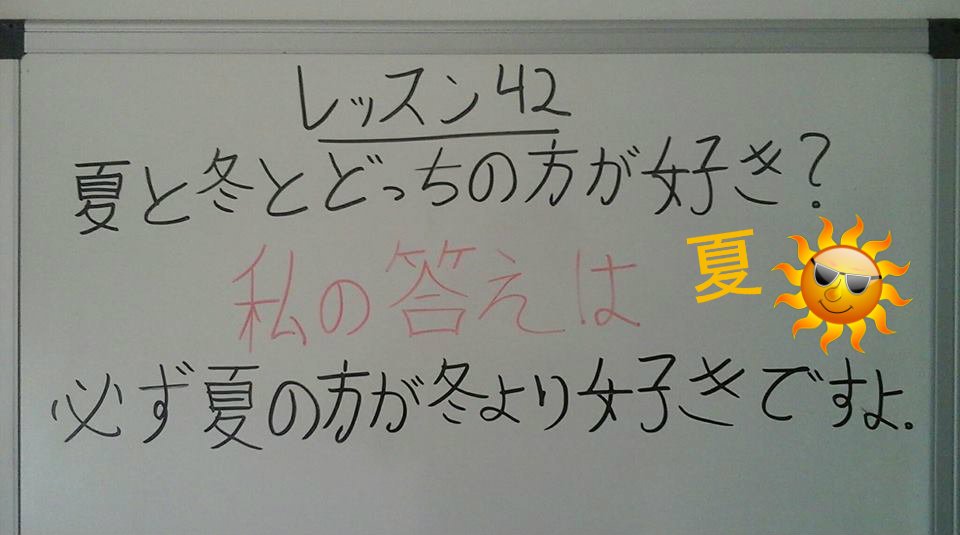 レッスン42
夏と冬とどっちの方が好き?
私の答えは 夏
必ず夏の方が冬より好きですよ.